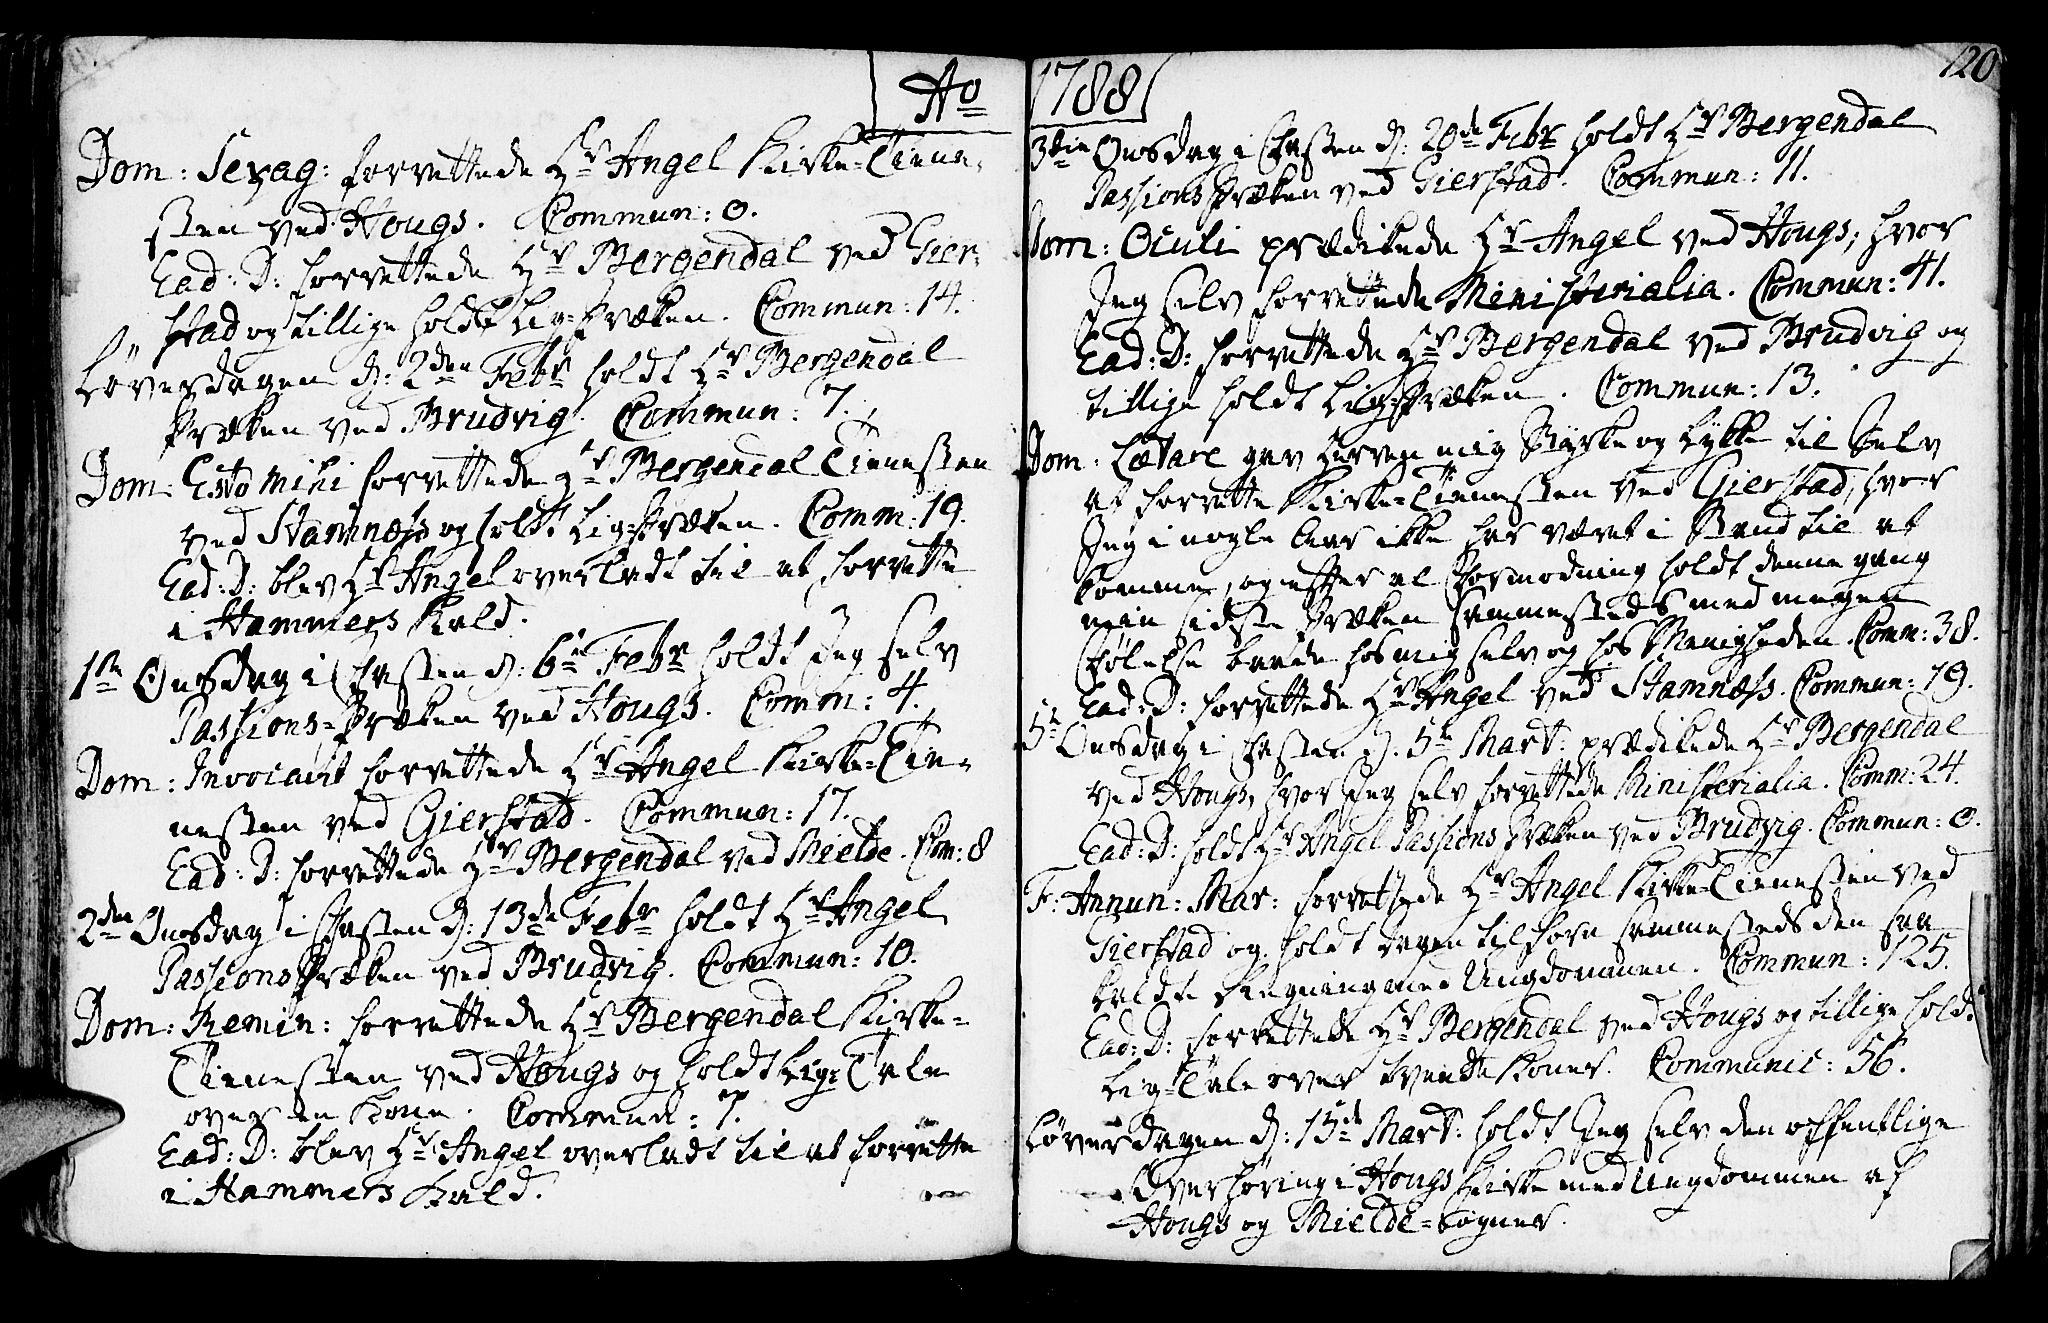 Ao
Dom: Sexag: forrettede Hr Angel Kirke-Tiene-
sten ved Hougs. Commun: 0.
Ead: D: forrettede Hr Bergendal ved Gier-
stad og tillige holdt Lig-Præken. Commun: 14.
Løverdagen d: 2den Febr holdt Hr Bergendal
Præken ved Brudvig. Commun: 7.
Dom: Esto mihi forrettede Hr Bergendal Tienesten
ved Stamnæss og holdt Lig-Præken. Comm: 19.
Ead: D: blev Hr Angel overladt til at forrette
i Hammers Kald.
1ste Onsdag i Fasten d: 6te Febr holdt Jeg selv
Passions-Præken ved Hougs. Comm: 4.
Dom: Invocavit forrettede Hr Angel Kirke-Tie-
nesten ved Gierstad. Commun: 17.
Ead: D: forrettede Hr Bergendal ved Mielde. Com: 8
2den Onsdag i Fasten d: 13de Febr holdt Hr Angel
Passions Præken ved Brudvig. Commun: 10.
Dom: Remin: forrettede Hr Bergendal Kirke-
Tienesten ved Hougs og holdt Lig-Tale
over en Kone. Commun: 7.
Ead: D: blev Hr Angel overladt til at forrette
i Hammers Kald.
1788
120
3die Onsdag i Fasten d: 20de Febr holdt Hr Bergendal
Passions Præken ved Gierstad. Commun: 11.
Dom: Oculi prædikede Hr Angel ved Hougs, hvor
Jeg selv forrettede Ministerialia. Commun: 41.
Ead: D: forrettede Hr Bergendal ved Brudvig og
tillige holdt Lig-Præken. Commun: 13.
Dom: Lætare gav Herren mig Styrke og Lykke til Selv
at forrette Kirke-Tienesten ved Gierstad, hvor
Jeg i nogle Aar ikke har været i Stand til at
komme, og efter al Formodning holdt denne gang
min sidste Præken sammesteds med megen
Følelse baade hos mig selv og hos Menigheden. Comm: 38.
Ead: D: forrettede Hr Angel ved Stamnæss. Commun: 19.
5te Onsdag i Fasten d. 5te Mart: prædikede Hr Bergendal
ved Hougs, hvor Jeg selv forrettede Ministerialia. Comm: 24.
Ead: D: holdt Hr Angel Passions Præken ved Brudvig. Commun: 0.
F: Annun: Mar: forrettede Hr Angel Kirke-Tienesten ved
Gierstad og holdt dagen tilforn sammesteds den saa
kaldte med Ungdommen. Commun: 125.
Ead: D: forrettede Hr Bergendal ved Hougs og tillige holdt
Lig-Tale over tvende Koner. Communic: 56.
Løverdagen d: 15de Mart: holdt Jeg selv den offentlige
Overhøring i Hougs Kirke med Ungdommen af
Hougs og Mielde-Sogner.